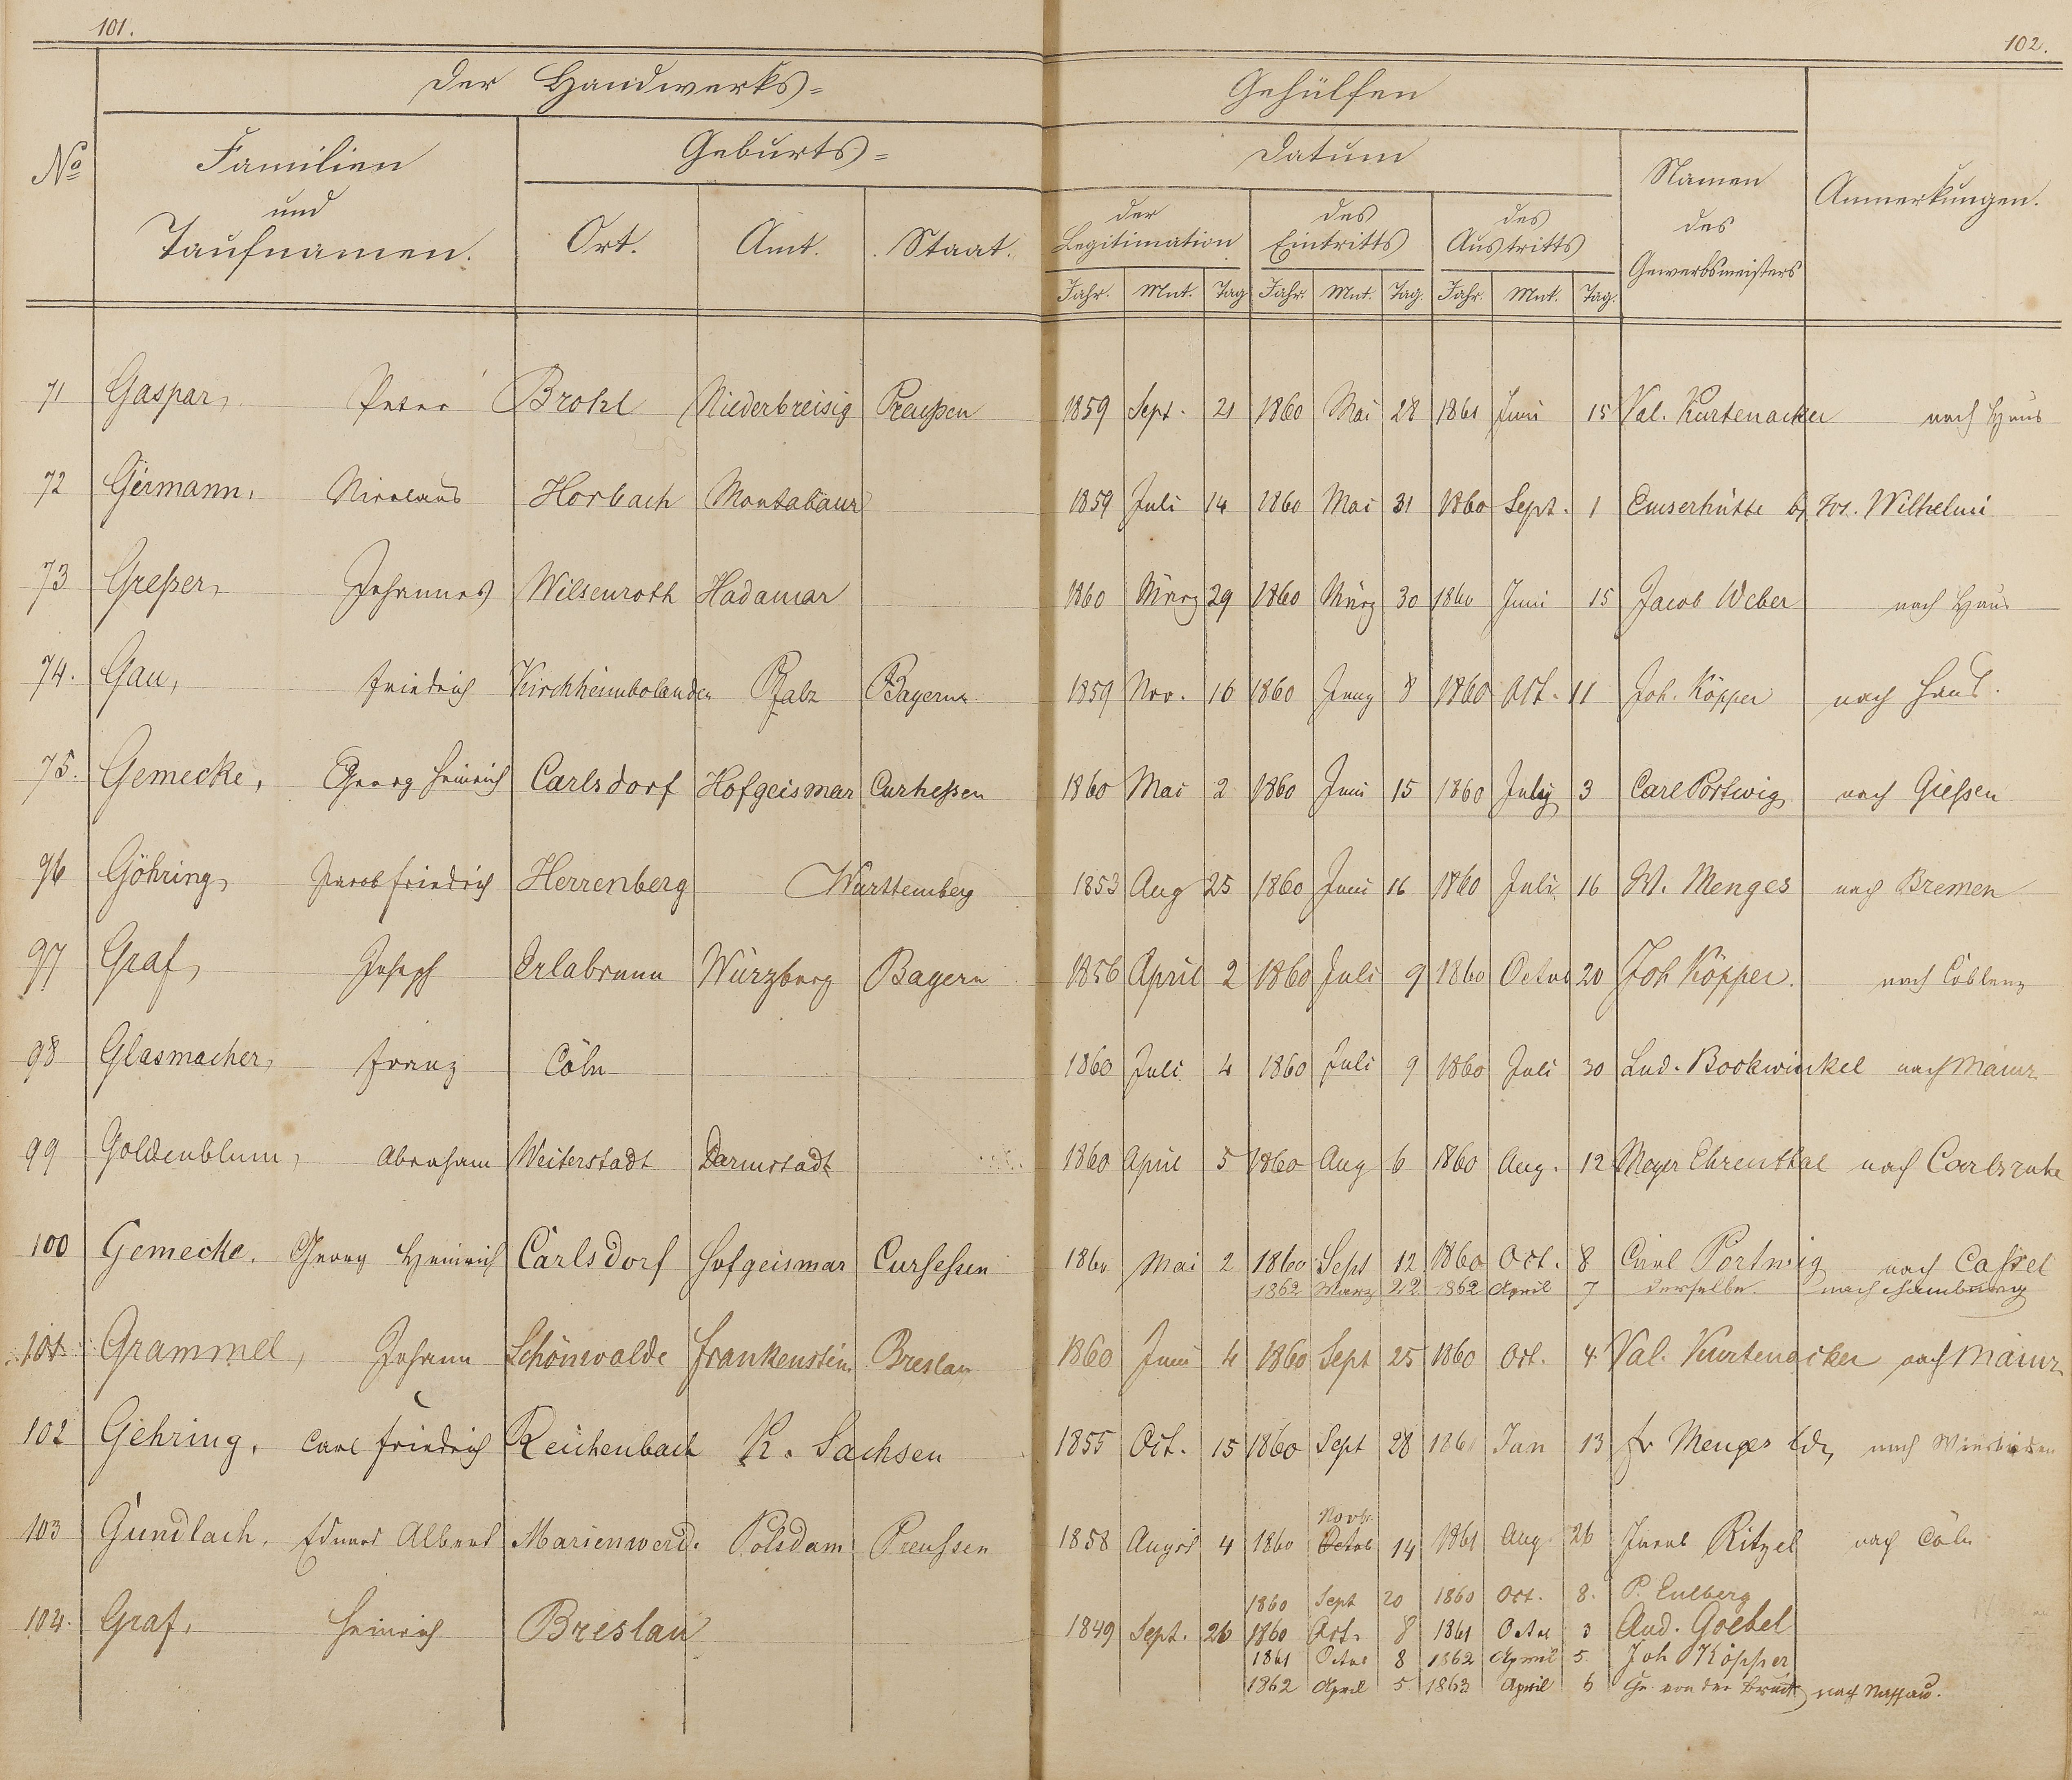 101.
102.
Der Handwerks=
Gehülfen
No
Familien
und
Taufnamen.
Geburts=
Ort.
Amt.
Staat.
Datum
der
Legitimation
des
Eintritts
des
Austritts
Jahr. Mnt. Tag Jahr. Mnt. Tag. Jahr. Mnt. Tag.
Namen
des
Gewerbsmeisters
Anmerkungen.
71 Gaspar, Peter Brohl Niederbreisig Preußen 1859 Sept. 21 1860 Mai 28 1861 Juni 15 Val. Kurtenacker nach Haus
72 Germann, Nicolaus Horbach Montabaur 1859 Juli 14 1860 Mai 31 1860 Sept. 1 Emserhütte Wilhelmi
73 Greßer, Johannes Wilsenroth Hadamar 1860 März 29 1860 März 30 1860 Juni 15 Jacob Weber nach Haus
74. Gau, Friedrich Kirchheimbolanden Pfalz Bayern 1859 Nov. 16 1860 Juny 8 1860 Oct. 11 Joh. Köpper nach Haus.
75. Gemecke, Georg Heinrich Carlsdorf Hofgeismar Curheßen 1860 Mai 2 1860 Juni 15 1860 July 3 Carl Portwig nach Gießen
96 Göhring, Jacob Friedrich Herrenberg Württemberg 1853 Aug 25 1860 Juni 16 1860 Juli 16 W. Menges nach Bremen
97 Graf, Joseph Erlabrunn Würzburg Bayern 1856 April 2 1860 Juli 9 1860 Octob 20 Joh Köpper. nach Coblenz
98 Glasmacher, Franz Cöln 1860 Juli 4 1860 Juli 9 1860 Juli 30 Lud. Bookwinkel nach Mainz
99 Goldenblum, Abraham Weiterstadt Darmstadt 1860 April 5 1860 Aug 6 1860 Aug. 12 Meyer Ehrenthal nach Carlsruhe
100 Gemecke. Georg Heinrich Carlsdorf Hofgeismar Curheßen 1860 Mai 2 1860 Sept 12 1860 Oct. 8 Carl Portwig nach Caßel
1862 März 22 1862 April 7 derselbe. nach Hamburg
101 Grammel, Johann Schönwalde Frankenstein Breslau 1860 Juni 4 1860 Sept 25 1860 Oct. 4 Val. Kurtenacker nach Mainz
102 Gehring, Carl Friedrich Reichenbach K. Sachsen 1855 Oct. 15 1860 Sept 28 1861 Jan 13 Fr Menges nach Wiesbaden
Novbr.
103 Gundlach, Eduard Albert Marienwerd. Potsdam Preußen 1858 August 4 1860 Octob 14 1861 Aug 26 Jacob Ritzel nach Cöln
1860 Sept 20 1860 Oct. 8. P. Eulberg
104. Graf, Heinrich Breslau 1849 Sept. 26 1860 Oct. 8 1861 Octob 3 And. Goebel
1861 Octob 8 1862 April 5. Joh Köpper
1862 April 5 1863 April 6 von der nach Nassau.